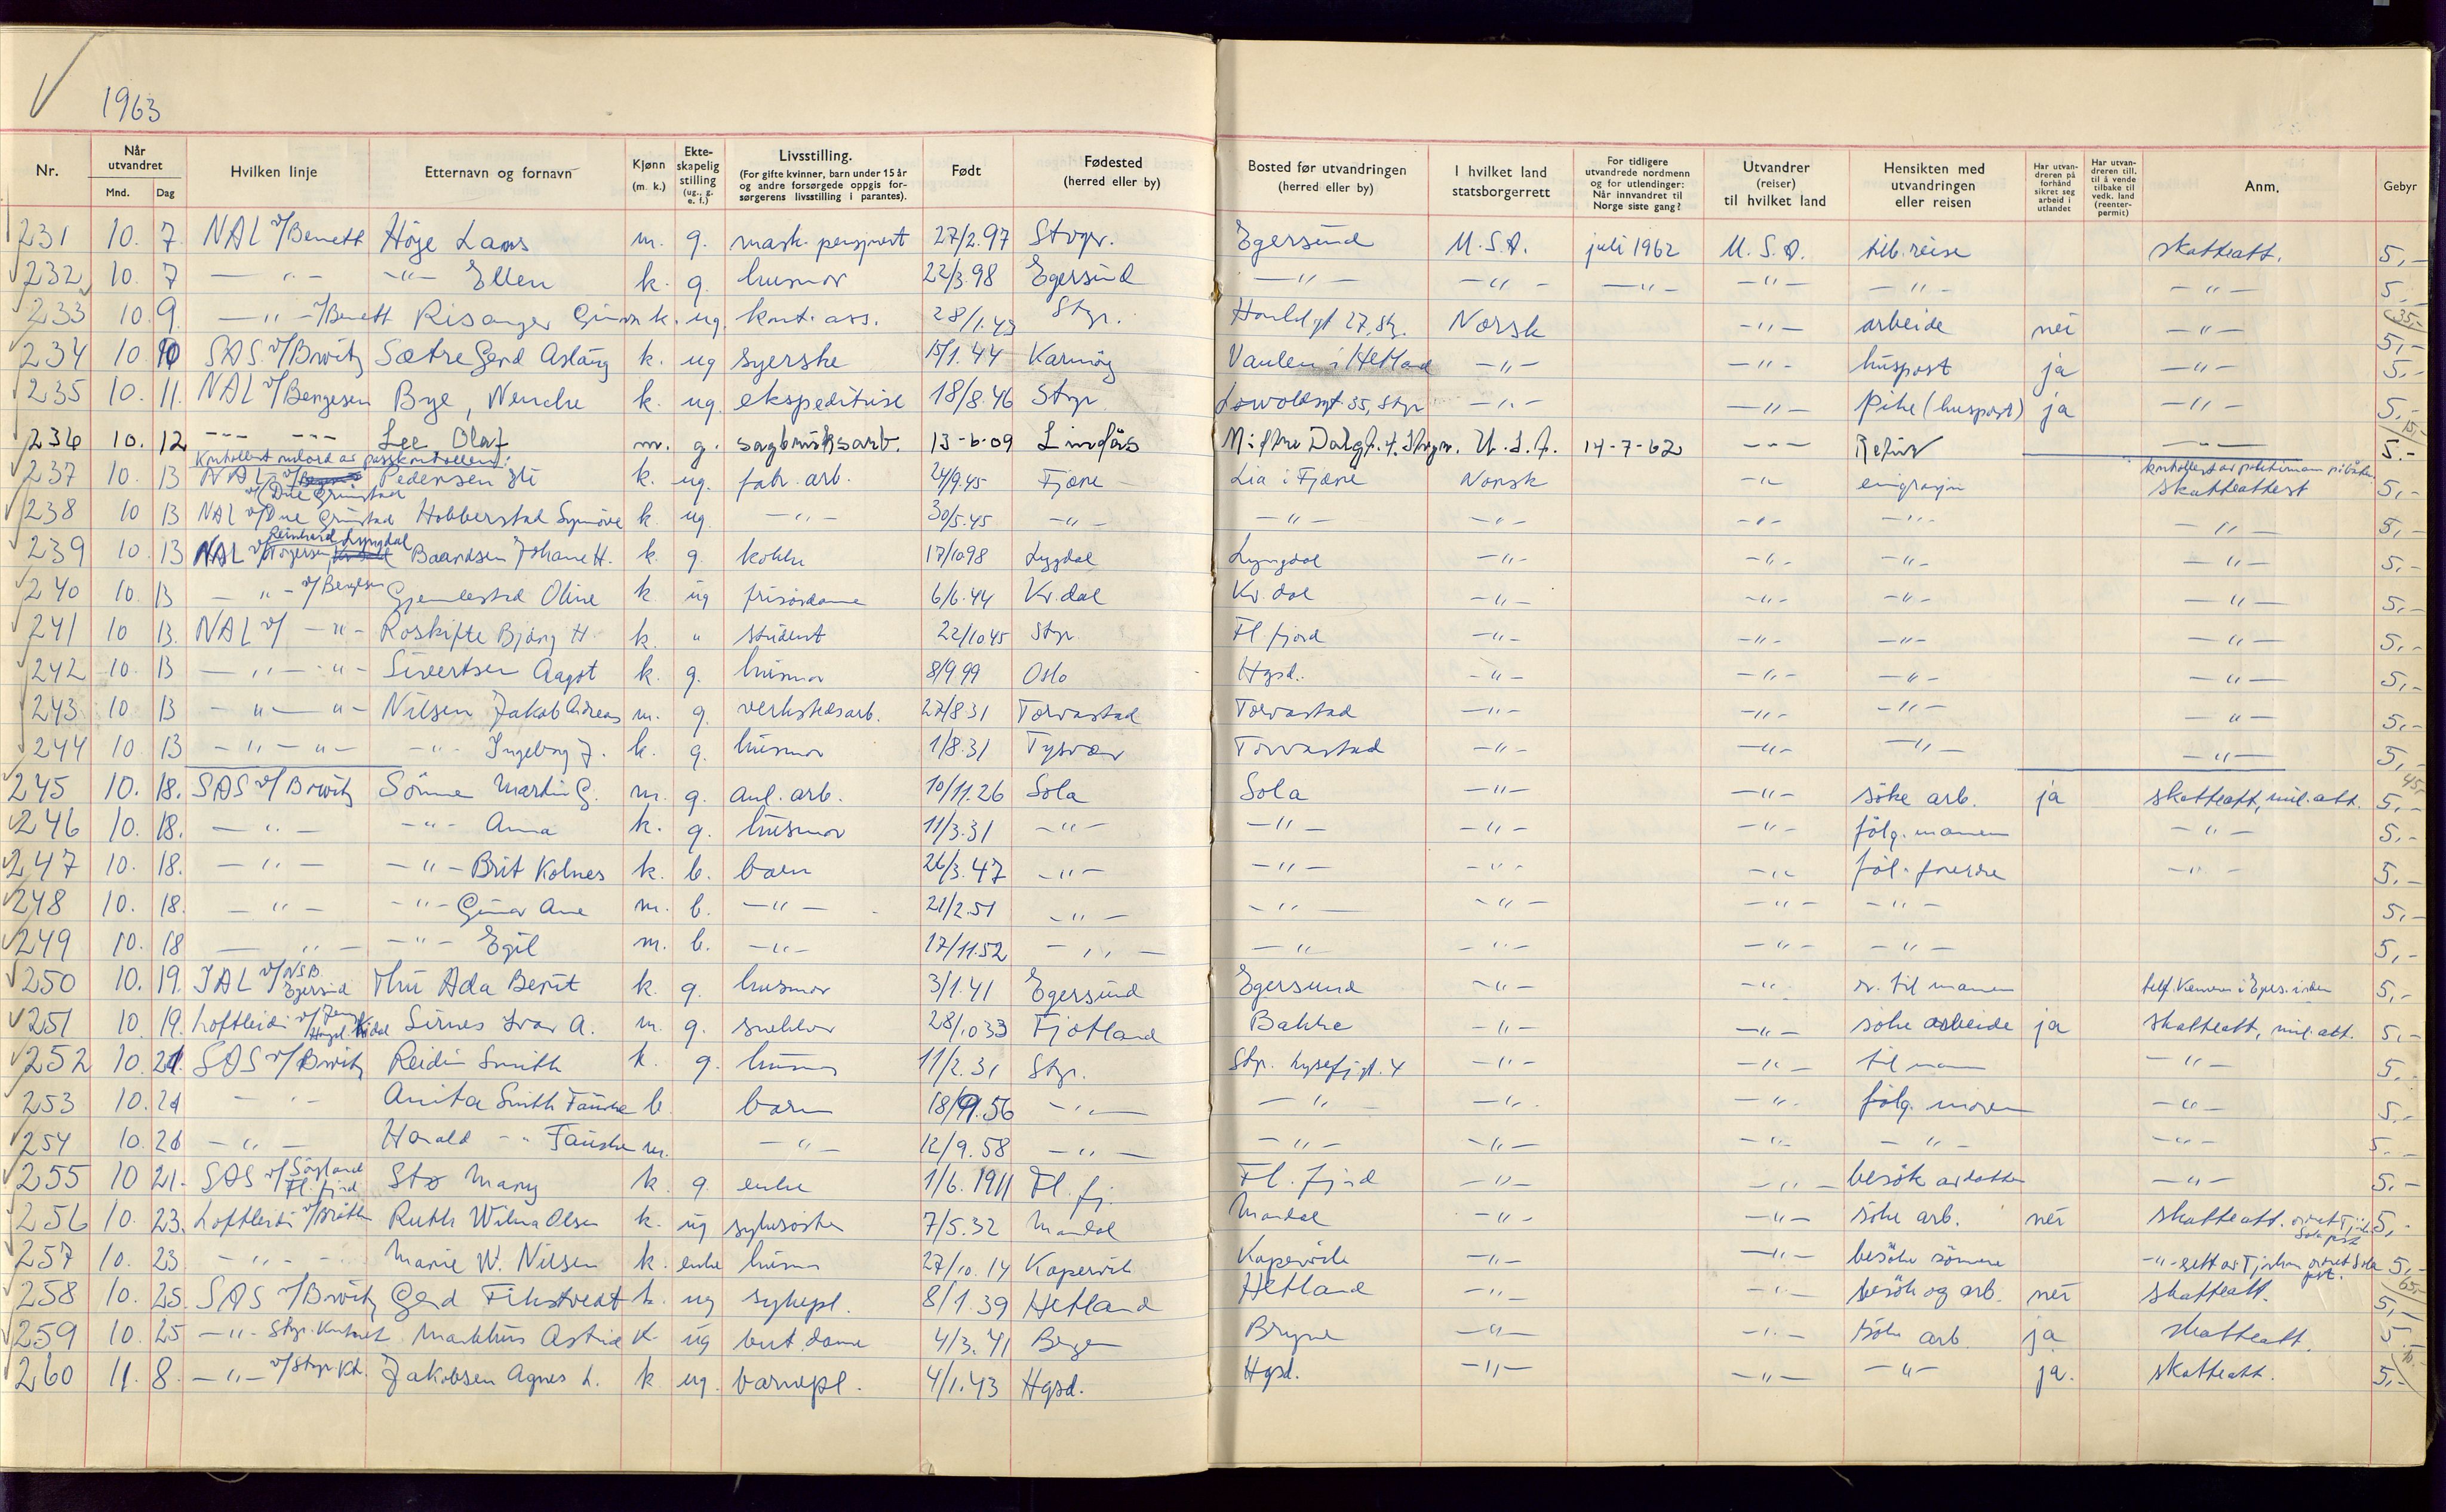 1963
Nr. Når utvandret Mnd. Dag Hvilken linje Etternavn og fornavn Kjønn (m. k.) Ekteskapelig stilling (ug., g. e. f.) Livsstilling. (For gifte kvinner, barn under 15 år og andre forsørgede oppgis forsørgerens livsstilling i parantes). Født Fødested (herred eller by) Bosted før utvandringen (herred eller by) I hvilket land statsborgerrett For tidligere utvandrede nordmenn og for utlendinger: Når innvandret til Norge siste gang? Utvandrer (reiser) til hvilket land Hensikten med utvandringen eller reisen Har utvandreren på forhånd sikret seg arbeid i utlandet Har utvandreren till. til å vende tilbake til vedk. land (reenterpermit) Anm. Gebyr
231 10. 7. NAL v/Benett Høye Lars m. g. mask. pensjonert 27/2.97 Stvgr. Egersund U.S.A. juli 1962 U.S.A. tilb. reise skatteatt. 5,-
232 10. 7 — " — — " — Ellen k. g. husmor 22/3.98 Egersund — " — — " — — " — — " — — " — — " — 5,-
233 10. 9. — " — v/Benett Risanger k. ug. kont. ass. 28/1.43 Stgr. 27, St. Norsk — " — arbeide nei — " — 5,-
35,-
234 10. 10 SAS v/Browitz Sætre Gerd Aslaug k. ug syerske 15/1.44 Karmøy Vaulen i Hetland — " — — " — huspost ja — " — 5,-
235 10. 11. NAL v/Bengesen Bye, Wenche k. ug. ekspeditrise 18/8.46 Stgr Løvoldsgt 35, Stgr — " — — " — Pike (huspost) ja — " — 5,-
15,-
236 10. 12 — " — — " — Lee Olaf m. g. sagbruksarb. 13-6-09 Lindås Midtre Dalgt. 4. Stvgr. U.S.A. 14-7-62 — " — Retur — " — 5.-
Kontrollert ombord av passkontrollen:
237 10. 13 NAL v/Due Grimstad Pedersen k. ug. fabr. arb. 24/9.45 Fjære Lia i Fjære Norsk — " — emigrasjon skatteattest 5,-
238 10 13 NAL v/Due Grimstad Hobberstad Synnøve k. ug. — " — 30/5.45 — " — — " — — " — — " — — " — — " — 5,-
239 10. 13 NAL v/Torgersen Reinhard Lyngdal Baardsen Johane H. k. g. kokke 17/10 98 Lygdal Lyngdal — " — — " — — " — — " — 5,-
240 10. 13 — " — v/Bengesen Gjemlestad Oline k. ug frisørdame 6/6.44 Kv.dal Kv.dal — " — — " — — " — — " — 5,-
241 10 13. NAL v/ — " — Roskifte Bjørg H. k. " student 22/10 45 Stgr. Fl. fjord — " — — " — — " — — " — 5,-
242 10. 13 — " — " — Sivertsen Aagot k. g. husmor 8/9 99 Oslo Hgsd. — " — — " — — " — — " — 5,-
243 10 13 — " — " — Nilsen Jakob Andreas m. g. verkstedsarb. 27/8 31 Torvastad Torvastad — " — — " — — " — — " — 5,-
244 10. 13 — " — " — — " — Ingeborg J. k. g. husmor 1/8.31 Tysvær Torvastad — " — — " — — " — — " — 5,-
45,-
245 10. 18. SAS v/Browitz Sømme Martin G. m. g. anl. arb. 10/11.26 Sola Sola — " — — " — søke arb. ja skatteatt, mil. att. 5,-
246 10. 18. — " — — " — Anna k. g. husmor 11/3.31 — " — — " — — " — — " — følg. mannen — " — 5,-
247 10. 18. — " — — " — Brit Kolnes k. b. barn 26/3.47 — " — — " — — " — — " — føl. foreldre — " — 5,-
248 10. 18. — " — — " — Gunnar Arne m. b. — " — 21/2.51 — " — — " — — " — — " — — " — 5,-
249 10. 18 — " — — " — Egil m. b. — " — 17/11.52 — " — — " — — " — — " — — " — 5,-
250 10. 19. IAL v/NSB Egersund Thu Ada Berit k. g. husmor 3/1.41 Egersund Egersund — " — — " — r. til mannen 5,-
251 10. 19. Loftleidi Sirnes Ivar A. m. g. snekker 28/10 33 Fjotland Bakke — " — — " — søke arbeide ja skatteatt, mil. att. 5,-
252 10. 21. SAS v/Browitz Reidun Smith k. g. husmor 11/2.31 Stgr. Stgr. Lysefj.gt. 4 — " — — " — til mann — " — 5,-
253 10. 21 — " — Anita Smith Fauske k. barn 18/9.56 — " — — " — — " — — " — følg. moren — " — 5.-
254 10. 21 — " — Harald — " — Fauske m. — " — 12/9.58 — " — — " — — " — — " — — " — — " — 5.-
255 10 21. SAS v/Søyland Fl. fjord Stø Mary k. g. enke 1/6.1911 Fl. fj. Fl. fjord — " — — " — besøk av datter — " — 5.-
256 10. 23. Loftleidi Ruth Wilma Olsen k. ug sykesøster 7/5.32 Mandal Mandal — " — — " — søke arb. nei skatteatt. 5,-
257 10. 23 — " — Marie W. Nilsen k. enke husmor 27/10.14 Kopervik Kopervik — " — — " — besøke sønnene — " — 5,-
65,-
258 10. 25. SAS v/Browitz Gerd Fikstvedt k. ug sykepl. 8/1.39 Hetland Hetland — " — — " — besøk og arb. nei skatteatt. 5,-
259 10. 25 — " — Stgr. Kontoret Markhus Astrid K. ug but. dame 4/3.41 Bergen Bryne — " — — " — søke arb ja skatteatt. 5.-
10.-
260 11. 8. — " — v/Stgr. Kt. Jakobsen Agnes L. k. ug. barnepl. 4/1.43 Hgsd. Hgsd. — " — — " — — " — ja. skatteatt. 5,-